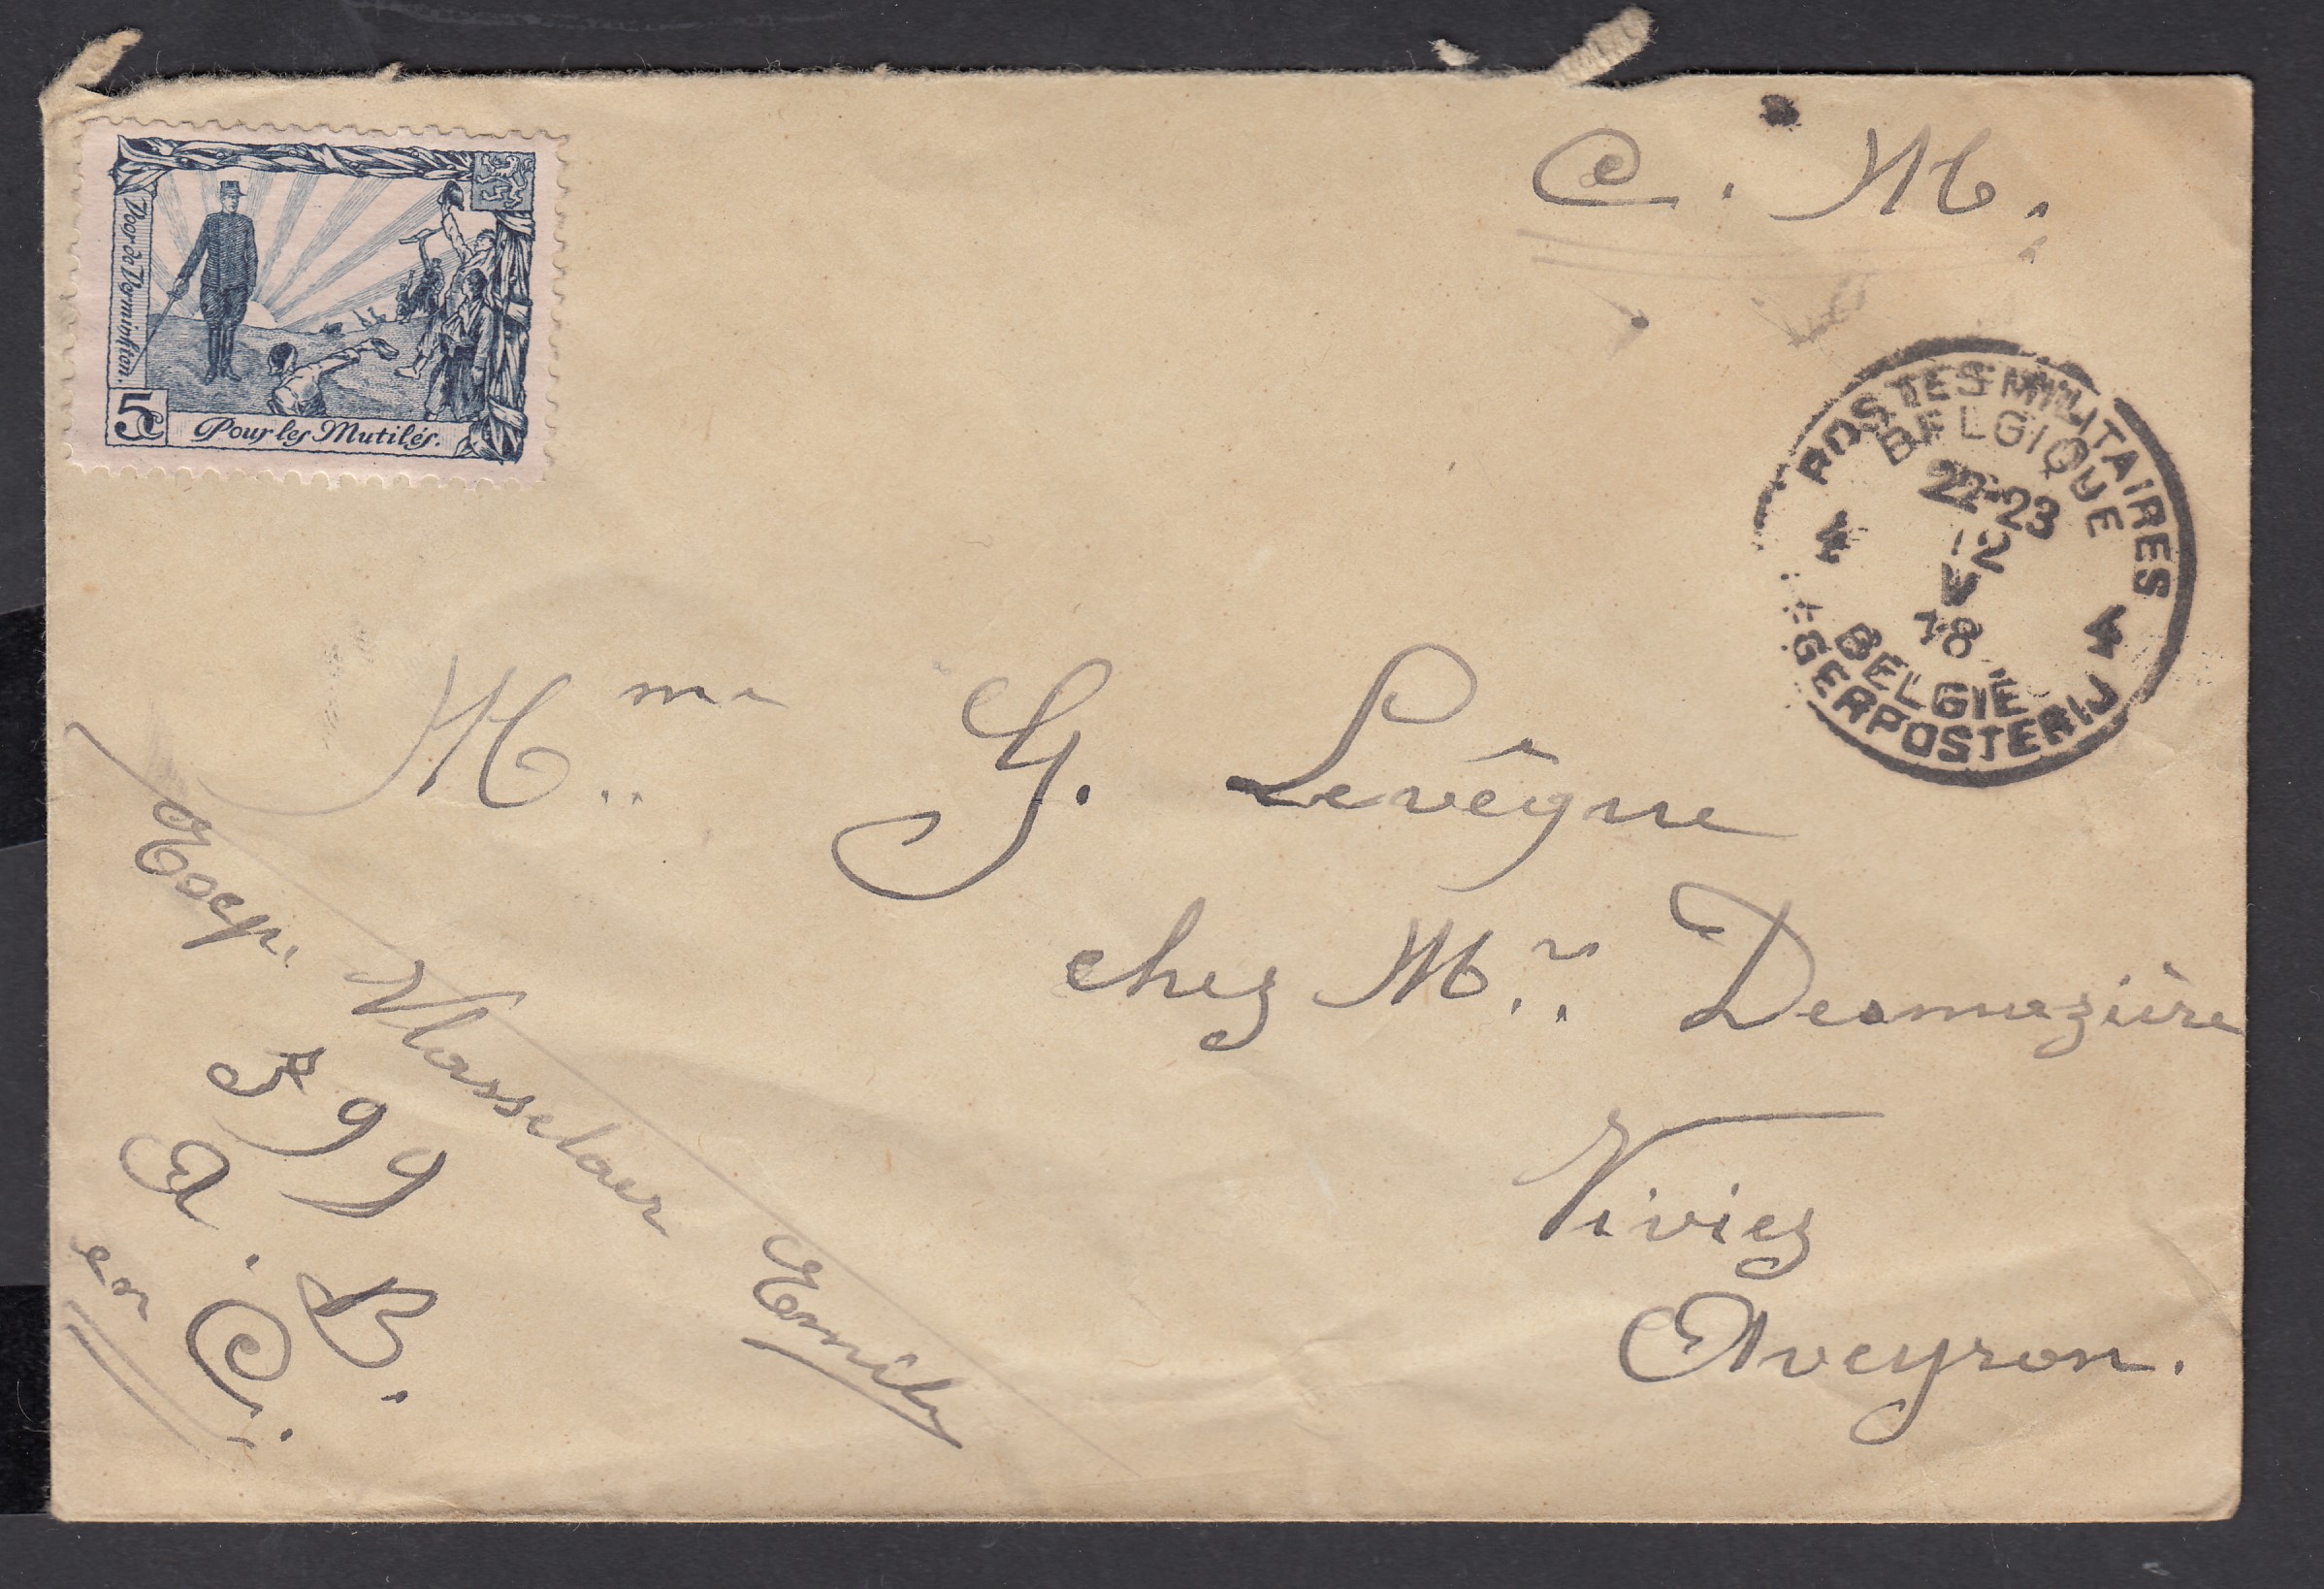 Voor de Verminkten.
5c
Pour les Mutilés.
C. M.
POSTES MILITAIRES
BELGIQUE
22-23
12
V
18
4 4
BELGIE
LEGERPOSTERIJ
Mme G. Levêque
chez Mr. Desmazière
Viviez
Aveyron.
Exep. Vlasselaer Emile
599
A. B.
en C.